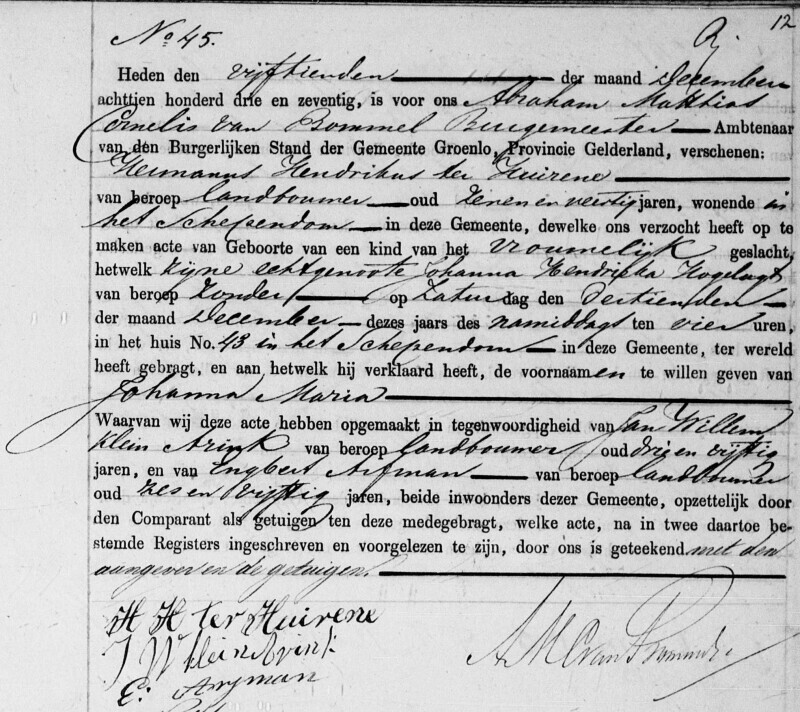 12
No 45.
Heden den vijftienden der maand December
achttien honderd drie en zeventig, is voor ons Abraham Matthias
Cornelis van Bommel Burgemeester Ambtenaar
van den Burgerlijken Stand der Gemeente Groenlo, Provincie Gelderland, verschenen:
Hermanus Hendrikus ter Huirene
van beroep landbouwer oud zeven en veertig jaren, wonende in
het Schependom in deze Gemeente, dewelke ons verzocht heeft op te
maken acte van Geboorte van een kind van het vrouwelijk geslacht,
hetwelk zijne echtgenoote Johanna Hendrika
van beroep zonder op Zaturdag den dertienden
der maand December dezes jaars des namiddags ten vier uren,
in het huis No. 43 in het Schependom in deze Gemeente, ter wereld
heeft gebragt, en aan hetwelk hij verklaard heeft, de voornaamen te willen geven van
Johanna Maria
Waarvan wij deze acte hebben opgemaakt in tegenwoordigheid van Jan Willem
klein Arink van beroep landbouwer oud drie en vijftig
jaren, en van Engbert van beroep landbouwer
oud zes en vijftig jaren, beide inwoonders dezer Gemeente, opzettelijk door
den Comparant als getuigen ten deze medegebragt, welke acte, na in twee daartoe be-
stemde Registers ingeschreven en voorgelezen te zijn, door ons is geteekend met den
aangever en de getuigen.
H H ter Huirene
J W klein Arink
A M C van Bommel
E.